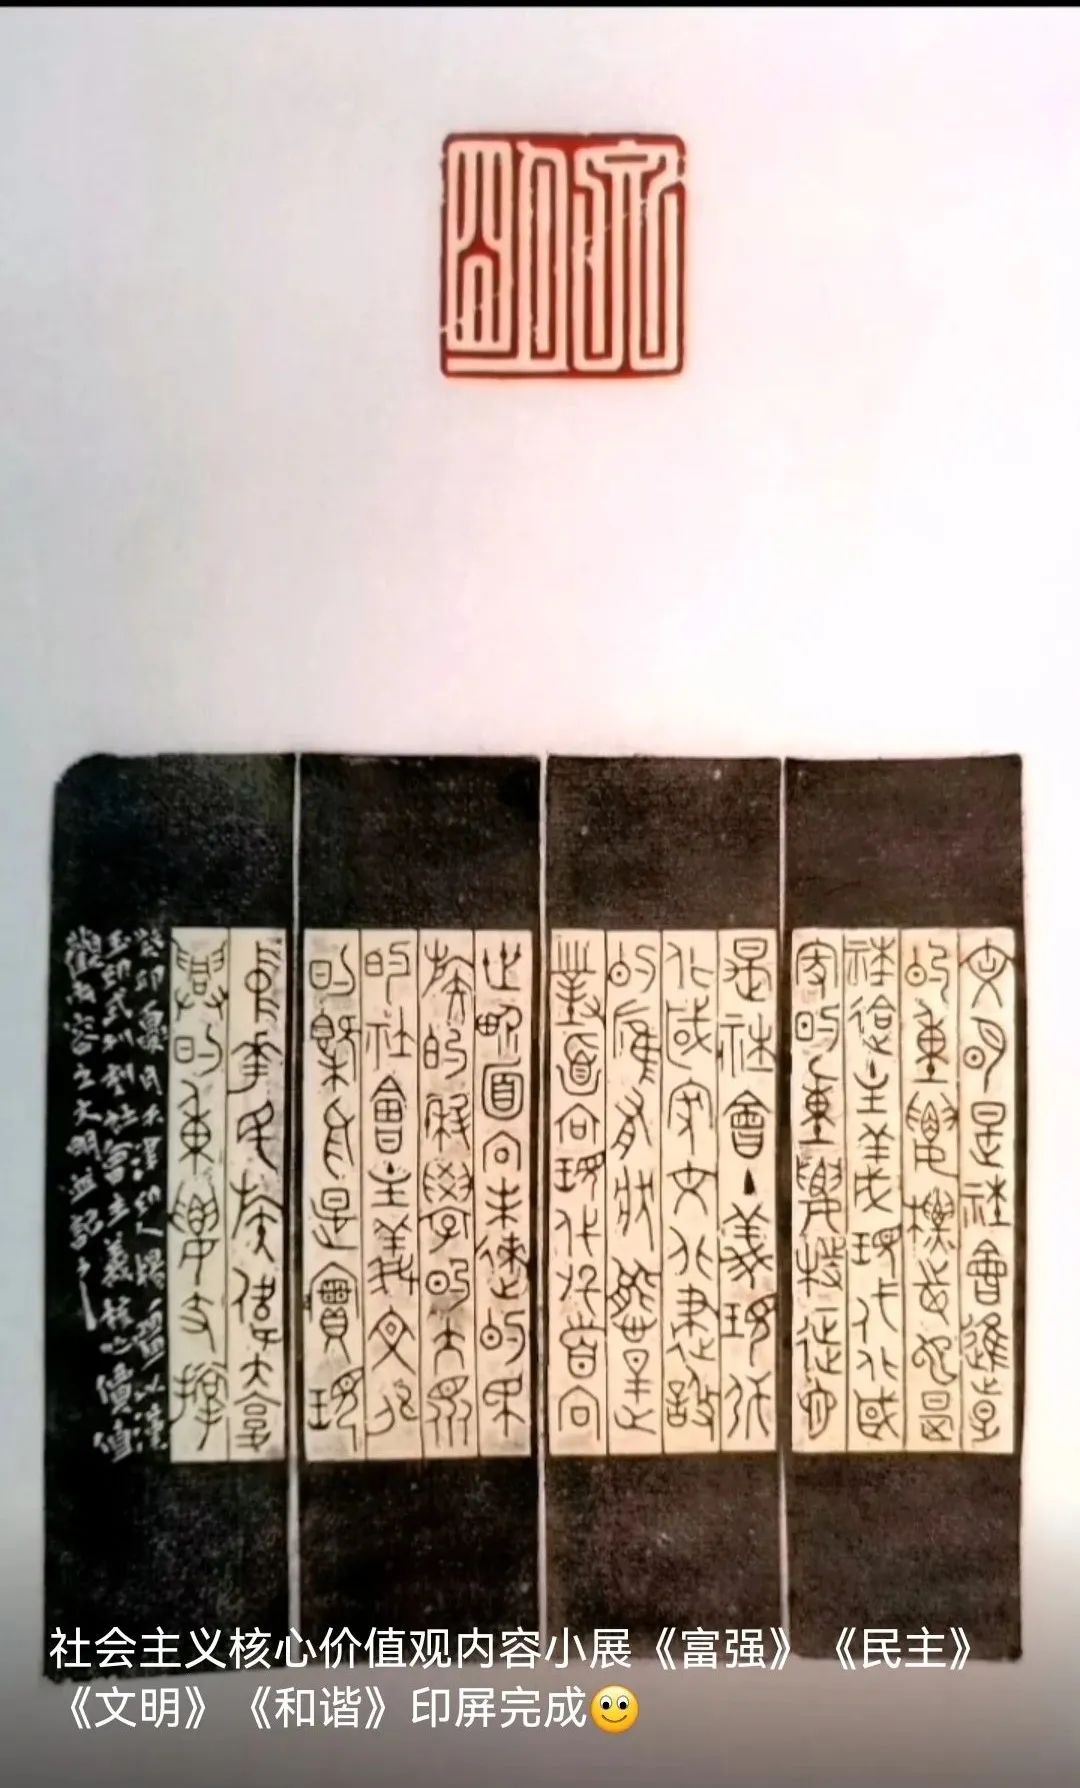 文明
文明是社會進步
的重要標志也是
社會主義現代化國
家的重要特征
是社會主義現代
化國家文化建設
的應有狀態是
對面向現代化面向
世界面向未來的民
族的科學的大眾
的社會主義文化
的概括是實現
中華民族偉大復
興的重要支撐
癸卯夏月天津印人楊以漢
玉印式刻制社會主義核心價值
觀內容之文明並記之
社会主义核心价值观内容小展《富强》《民主》
《文明》《和谐》印屏完成